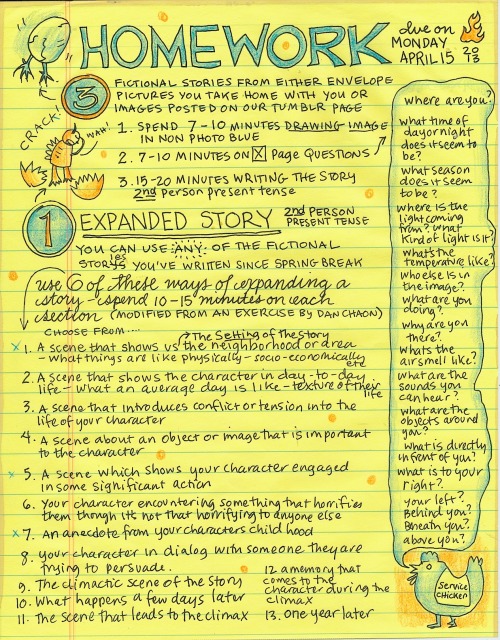 HOMEWORK
due on
MONDAY
APRIL 15 2013
3 FICTIONAL STORIES FROM EITHER ENVELOPE
PICTURES YOU TAKE HOME WITH YOU OR
IMAGES POSTED ON OUR TUMBLR PAGE
CRACK!
WAH!
1. SPEND 7-10 MINUTES DRAWING IMAGE
IN NON PHOTO BLUE
2. 7-10 MINUTES ON X Page QUESTIONS
3. 15-20 MINUTES WRITING THE STORY
2nd person present tense
1 EXPANDED STORY 2nd PERSON
PRESENT TENSE
YOU CAN USE ANY OF THE FICTIONAL
STORIES YOU'VE WRITTEN SINCE SPRING BREAK
use 6 of these ways of expanding a
story - spend 10-15 minutes on each
section (MODIFIED FROM AN EXERCISE BY DAN CHAON)
CHOOSE FROM....
The Setting of the story
x 1. A scene that shows us the neighborhood or area
- what things are like physically - socio-economically etc
2. A scene that shows the character in day-to-day
life - what an average day is like - texture of their life
3. A scene that introduces conflict or tension into the
life of your character
4. A scene about an object or image that is important
to the character
x 5. A scene which shows your character engaged
in some significant action
6. Your character encountering something that horrifies
them though it's not that horrifying to anyone else
x 7. An anecdote from your characters child hood
8. your character in dialog with someone they are
trying to persuade.
9. The climactic scene of the story
10. What happens a few days later
11. The scene that leads to the climax
12 a memory that
comes to the
character during the
climax
13. one year later
where are you?
what time of
day or night
does it seem to
be?
what season
does it seem
to be?
where is the
light coming
from? what
kind of light is it?
what's the
temperature like?
who else is in
the image?
what are you
doing?
why are you
there?
whats the
air smell like?
what are the
sounds you
can hear?
what are the
objects around
you?
what is directly
in front of you?
what is to your
right?
your left?
Behind you?
Beneath you?
above you?
SERVICE
CHICKEN